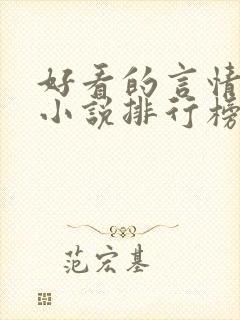 好看的言情
小说排行榜
范宏基